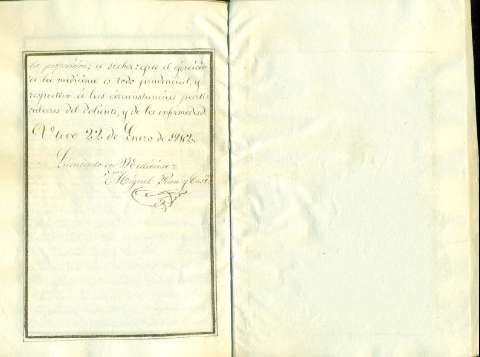 la profesion; á sea de que el ejercicio
de la medicina es todo prudencial, y
respectivo á las circunstancias parti-
culares del doliente, y de la enfermedad.
Vivero 22 de Enero de 1862.
Licenciado en Medicina
Miguel